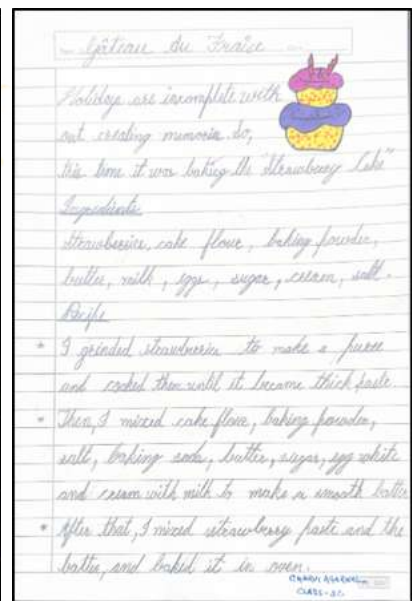 Gâteau du Fraise
Holidays are incomplete with
out creating memories. So,
this time it was baking the "Strawberry Cake"
Ingredients
Strawberries, cake flour, baking powder,
butter, milk, eggs, sugar, cream, salt.
Recipe
* I grinded strawberries to make a puree
and cooked them until it became thick paste.
* Then, I mixed cake flour, baking powder,
salt, baking soda, butter, sugar, egg white
and cream with milk to make a smooth batter
* After that, I mixed strawberry paste and the
batter, and baked it in oven.
CHARVI AGARWAL
CLASS-